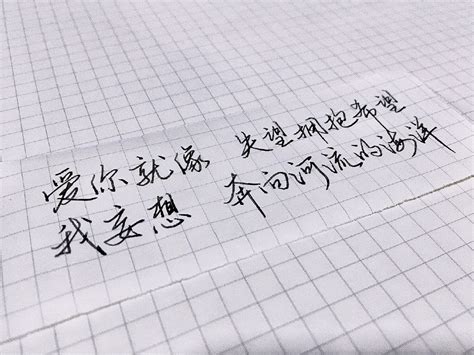 爱你就像 失望拥抱希望
我妄想 奔向河流的海洋